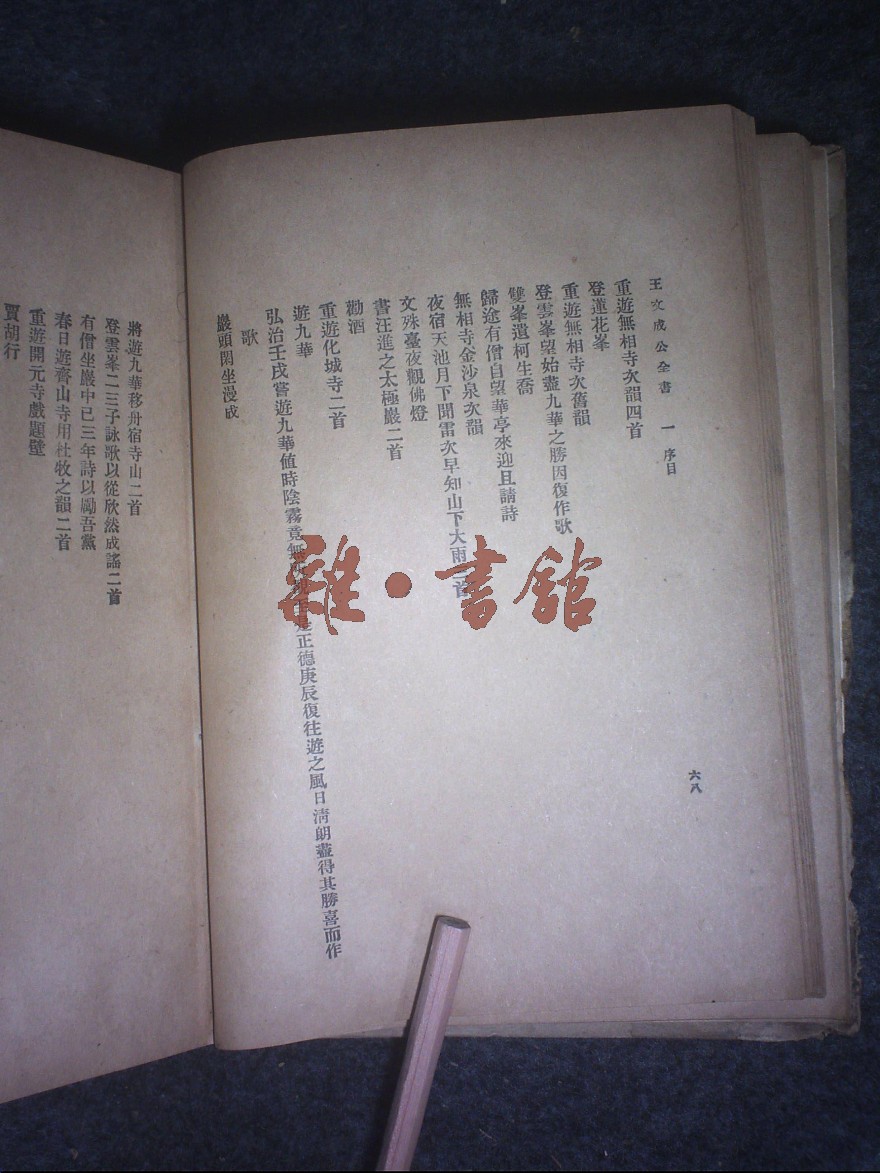 王文成公全書 一 序目
六八
重遊無相寺次韻四首
登蓮花峯
重遊無相寺次舊韻
登雲峯望始盡九華之勝因復作歌
雙峯遺柯生喬
歸途有僧自望華亭來迎且請詩
無相寺金沙泉次韻
夜宿天池月下聞雷次早知山下大雨二首
文殊臺夜觀佛燈
書汪進之太極巖二首
勸酒
重遊化城寺二首
遊九華
弘治壬戌嘗遊九華值時陰霧竟無 是正德庚辰復往遊之風日清朗盡得其勝喜而作
歌
巖頭閑坐漫成
將遊九華移舟宿寺山二首
登雲峯二三子詠歌以從欣然成謠二首
有僧坐巖中已三年詩以勵吾黨
春日遊齊山寺用杜牧之韻二首
重遊開元寺戲題壁
賈胡行
雜·書館